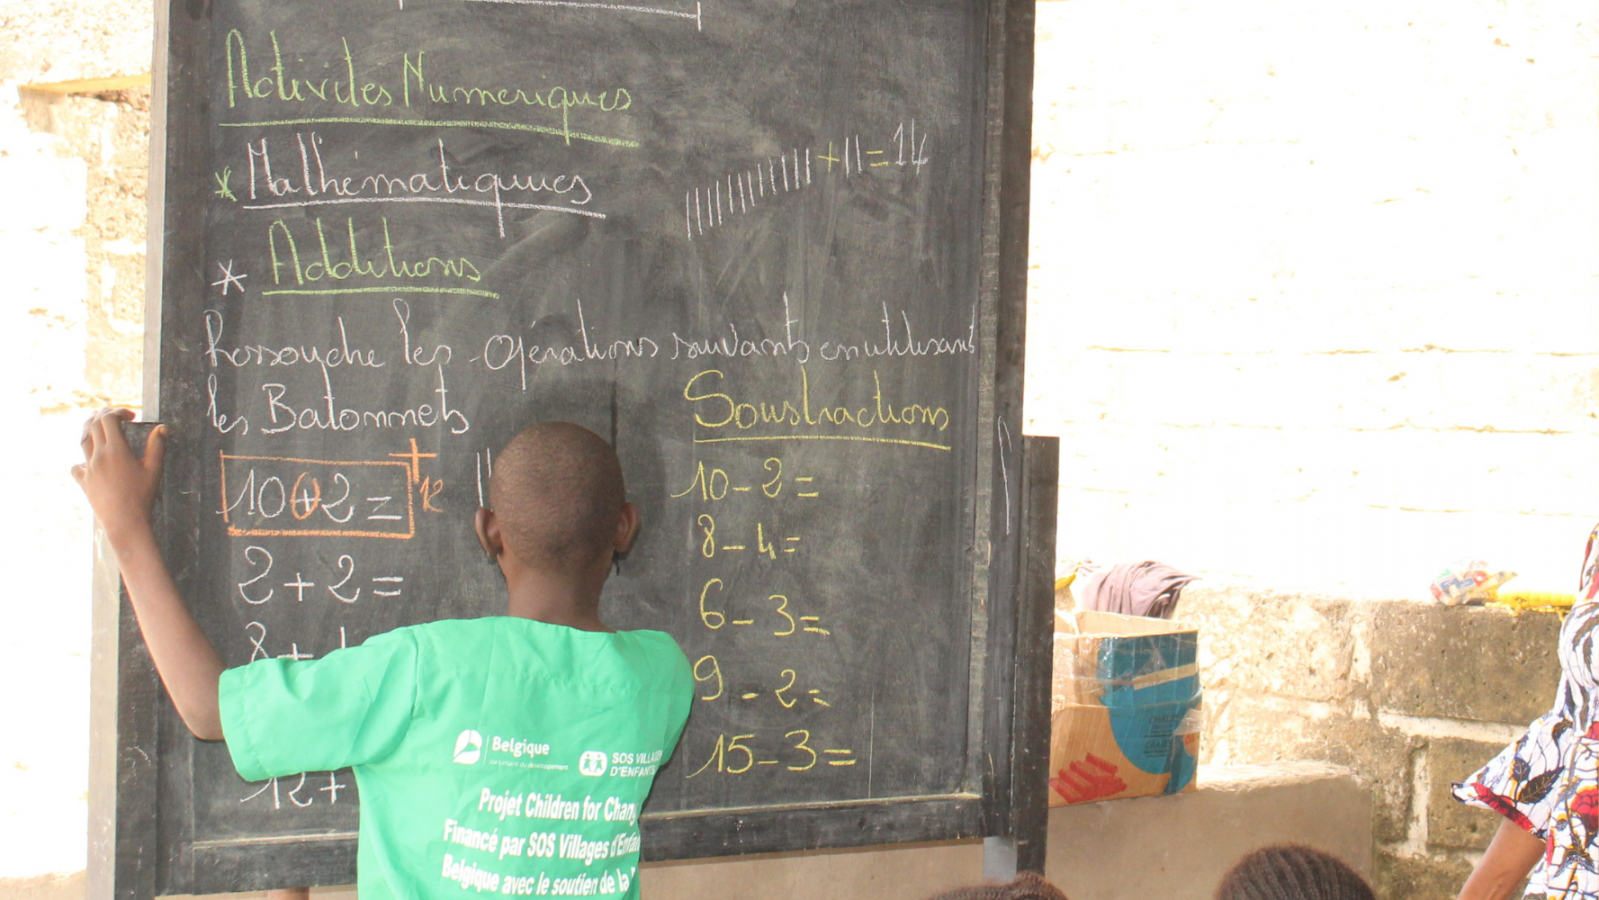 Activites Numeriques
* Mathématiques
+ || = 14
* Additions
les opérations suivants en utilisant
les Batonnets
10+2= 12
2+2=
8+
12+
Soustractions
10-2=
8-4=
6-3=
9-2=
15-3=
Belgique
SOS VILLAGES
D'ENFANTS
Projet Children for Chan
Financé par SOS Villages d'Enfa
Belgique avec le soutien de la